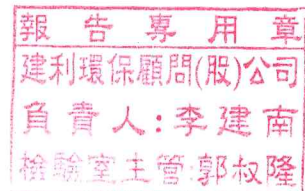 報告專用章
建利環保顧問(股)公司
負責人:李建南
檢驗室主管:郭淑隆